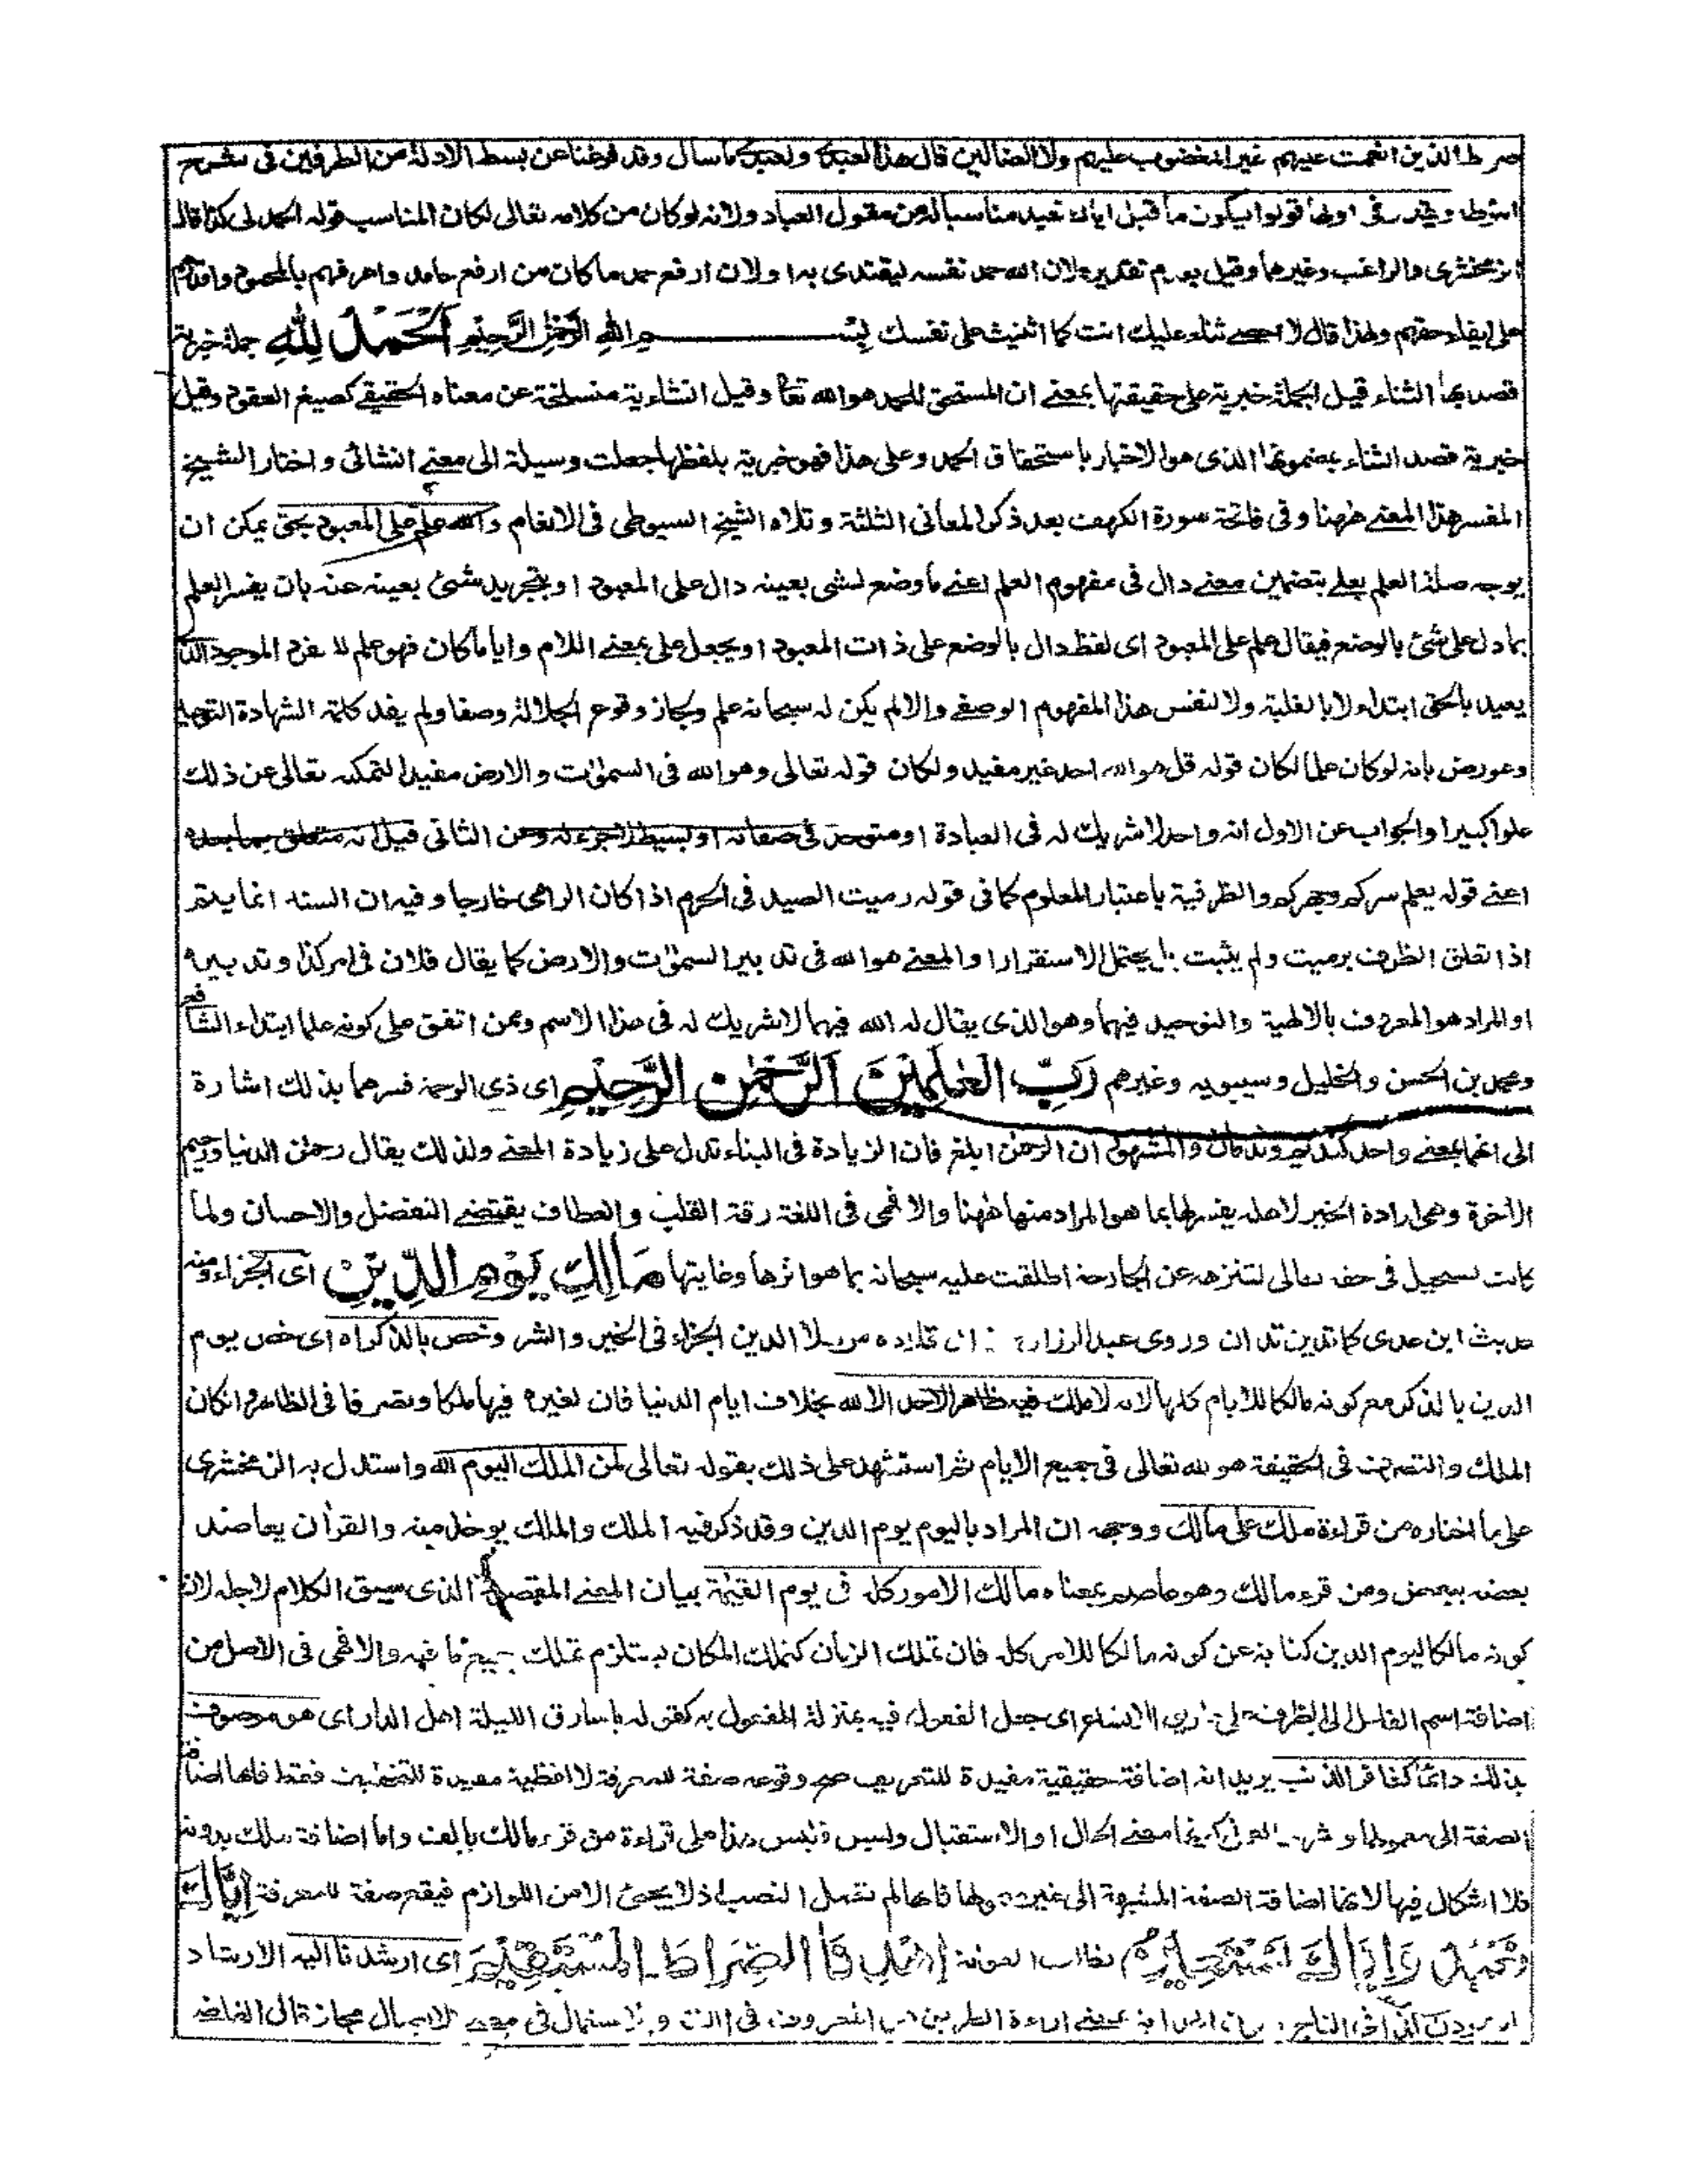 صراط الذين انعمت عليهم غير المغضوب عليهم ولا الضالين قال هذا لعبدى ولعبدى ما سأل وقد فرغنا عن بسط الادلة من الطرفين فى شرح
ويقدر فى اولها قولوا ليكون ما قبل اياك نعبد مناسبا له من مقول العباد ولانه لو كان من كلامه تعالى لكان المناسب قوله الحمد لى كذا قال
الزمخشرى والراغب وغيرهما وقيل يوم تقديره لان الله حمد نفسه ليقتدى به او لان ارفع حمد ما كان من ارفع حامد واعرفهم بالمحمود واقدرهم
على ايفاء حقهم ولهذا قال لا احصے ثناء عليك انت كما اثنيت على نفسك بسم الله الرحمن الرحيم اَلْحَمْدُ لِلّٰهِ جملة خبرية
قصد بها الثناء قيل الجملة خبرية على حقيقتها بمعنے ان المستحق للحمد هو الله تعا وقيل انشاءية منسلخة عن معناه الحقيقے كصيغ العقود وقيل
خبرية قصد الثناء بمضمونها الذى هو الاخبار باستحقاق الحمد وعلى هذا فهو خبرية بلفظها جعلت وسيلة الى معنے انشائى واختار الشيخ
المفسر هذا المعنے ههنا وفى فاتحة سورة الكهف بعد ذكر المعانى الثلثة وتلاه الشيخ السيوطى فى الانعام والله علم على المعبود بحق يمكن ان
يوجه صلة العلم بعلے بتضمين معنے دال فى مفهوم العلم اعنے ما وضع لشى بعينه دال على المعبود او بتجريد شئ بعينه عنه بان يفسر العلم
بما دل على شئ بالوضع فيقال علم على المعبود اى لفظ دال بالوضع على ذات المعبود او يجعل على بمعنے اللام وايا ما كان فهو علم للفرد الموجود الذى
يعبد بالحق ابتداء لا بالغلبة ولا لنفس هذا المفهوم الوصفے والا لم يكن له سبحانه علم ولجاز وقوع الجلالة وصفا ولم يفد كلمة الشهادة التوحيد
وعورض بانه لو كان علما لكان قوله قل هو الله احد غير مفيد ولكان قوله تعالى وهو الله فى السمٰوٰت والارض مفيدا لتمكنه تعالى عن ذلك
علوا كبيرا والجواب عن الاول انه واحد لا شريك له فى العبادة او متوحد فى صفاته او بسيط لا جزء له وعن الثانى قيل انه متعلق بما بعده
اعنے قوله يعلم سركم وجهركم والظرفية باعتبار المعلوم كما فى قوله رميت الصيد فى الحرم اذا كان الرامى خارجا وفيه ان السند انما يتم
اذا تعلق الظرف برميت ولم يثبت بل يحتمل الاستقرار او المعنے هو الله فى تدبير السمٰوٰت والارض كما يقال فلان فى امر كذا وتدبيره
او المراد هو المعروف بالالهية والتوحيد فيهما وهو الذى يقال له الله فيهما لا شريك له فى هذا الاسم وممن اتفق على كونه علما ابتداء الشافعى
ومحمد بن الحسن والخليل وسيبويه وغيرهم رَبِّ الْعٰلَمِيْنَ اَلرَّحْمٰنِ الرَّحِيْمِ اى ذى الرحمة فسرهما بذلك اشارة
الى انهما بمعنے واحد كنديم وندمان والمشهور ان الرحمٰن ابلغ فان الزيادة فى البناء تدل على زيادة المعنے ولذلك يقال رحمٰن الدنيا ورحيم
الاٰخرة وهى ارادة الخير لاهله يفسرها بما هو المراد منها ههنا والا فهى فى اللغة رقة القلب والعطاف يقتضے التفضل والاحسان ولما
كانت تستحيل فى حقه تعالى لتنزهه عن الجارحة اطلقت عليه سبحانه بما هو اثرها وغايتها مَالِكِ يَوْمِ الدِّيْنِ اى الجزاء ومنه
حديث ابن عدى كما تدين تدان وروى عبد الرزاق ان قتادة الدين الجزاء فى الخير والشر وخص بالذكر اه اى خص يوم
الدين بالذكر مع كونه مالكا للايام كلها لانه لا ملك فيه ظاهر الاحد الا الله بخلاف ايام الدنيا فان لغيره فيها ملكا وتصرفا فى الظاهر وان كان
الملك والتصرف فى الحقيقة هو لله تعالى فى جميع الايام ثم استشهد على ذلك بقوله تعالى لمن الملك اليوم لله واستدل به الزمخشرى
على ما اختاره من قراءة ملك على مالك ووجهه ان المراد باليوم يوم الدين وقد ذكر فيه الملك والملك يوخذ منه والقراٰن يعاضد
بعضه ببعض ومن قرء مالك وهو عاصم معناه مالك الامور كله فى يوم القيٰمة بيان المعنے المقصود الذى سيق الكلام لاجله لان
كونه مالكا ليوم الدين كناية عن كونه مالكا للامر كله فان تملك الزمان كتملك المكان يستلزم تملك جميع ما فيه والا فهى فى الاصل من
اضافة اسم الفاعل الى الظرف على طريق الاتساع اى جعل المفعول فيه بمنزلة المفعول به كقوله يا سارق الليلة اهل الدار اى هو موصوف
بذلك دائما كغافر الذنب يريد انه اضافة حقيقية مفيدة للتعريف صح وقوعه صفة للمعرفة لا لفظية مفيدة للتخفيف فقط فانها اضافة
الصفة الى معمولها معنے الحال او الاستقبال وليس فليس هذا على قراءة من قرء مالك بالف واما اضافة ملك بدونه
فلا اشكال فيها لانها اضافة الصفة المشبهة الى غير معمولها فانها لم تعمل النصب اذ لا يجئ الا من اللوازم فيقع صفة للمعرفة اِيَّاكَ
نَعْبُدُ وَاِيَّاكَ نَسْتَعِيْنُ نطلب المعونة اِهْدِنَا الصِّرَاطَ الْمُسْتَقِيْمَ اى ارشدنا اليه الارشاد
فى التاج اراءة الطريق المعروف فى مجاز قال الفاضل